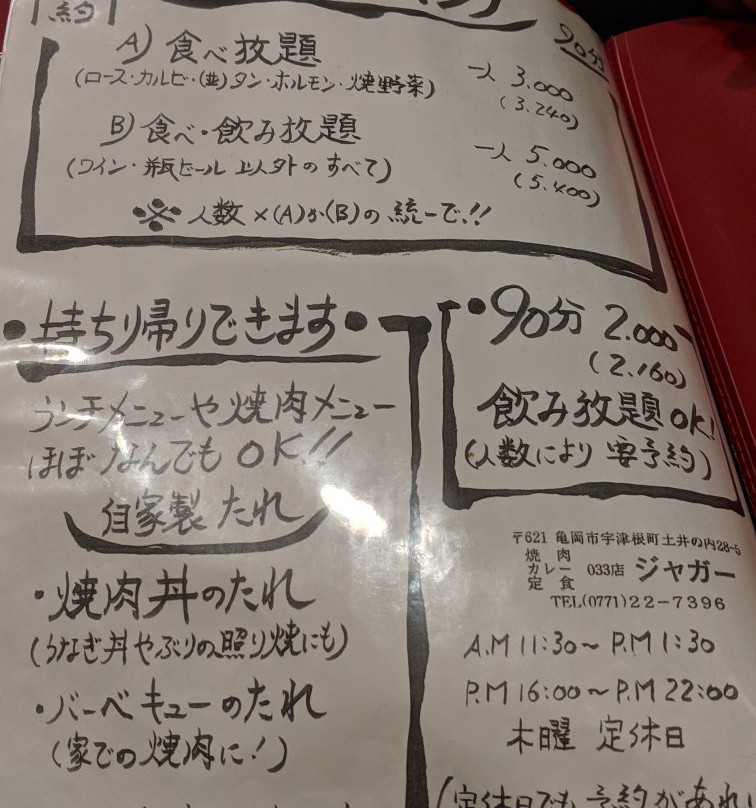 約
90分
A) 食べ放題
(ロース・カルビ・(並)タン・ホルモン・焼野菜)
一人 3.000
(3.240)
B) 食べ・飲み放題
(ワイン・瓶ビール 以外の すべて)
一人 5.000
(5.400)
※ 人数 ×(A)か(B)の 統一で!!
・持ち帰りできます・
ランチメニューや焼肉メニュー
ほぼ なんでも OK!!
自家製 たれ
・焼肉丼のたれ
(うなぎ丼やぶりの照り焼にも)
・バーベキューのたれ
(家での焼肉に!)
・90分 2.000
(2.160)
飲み放題OK!
(人数により 要予約)
〒621 亀岡市宇津根町土井の内28-5
焼肉
カレー 033店 ジャガー
定食
TEL(0771)22-7396
A.M 11:30〜 P.M 1:30
P.M 16:00〜P.M 22:00
木曜 定休日
(定休日でも 予約があれ